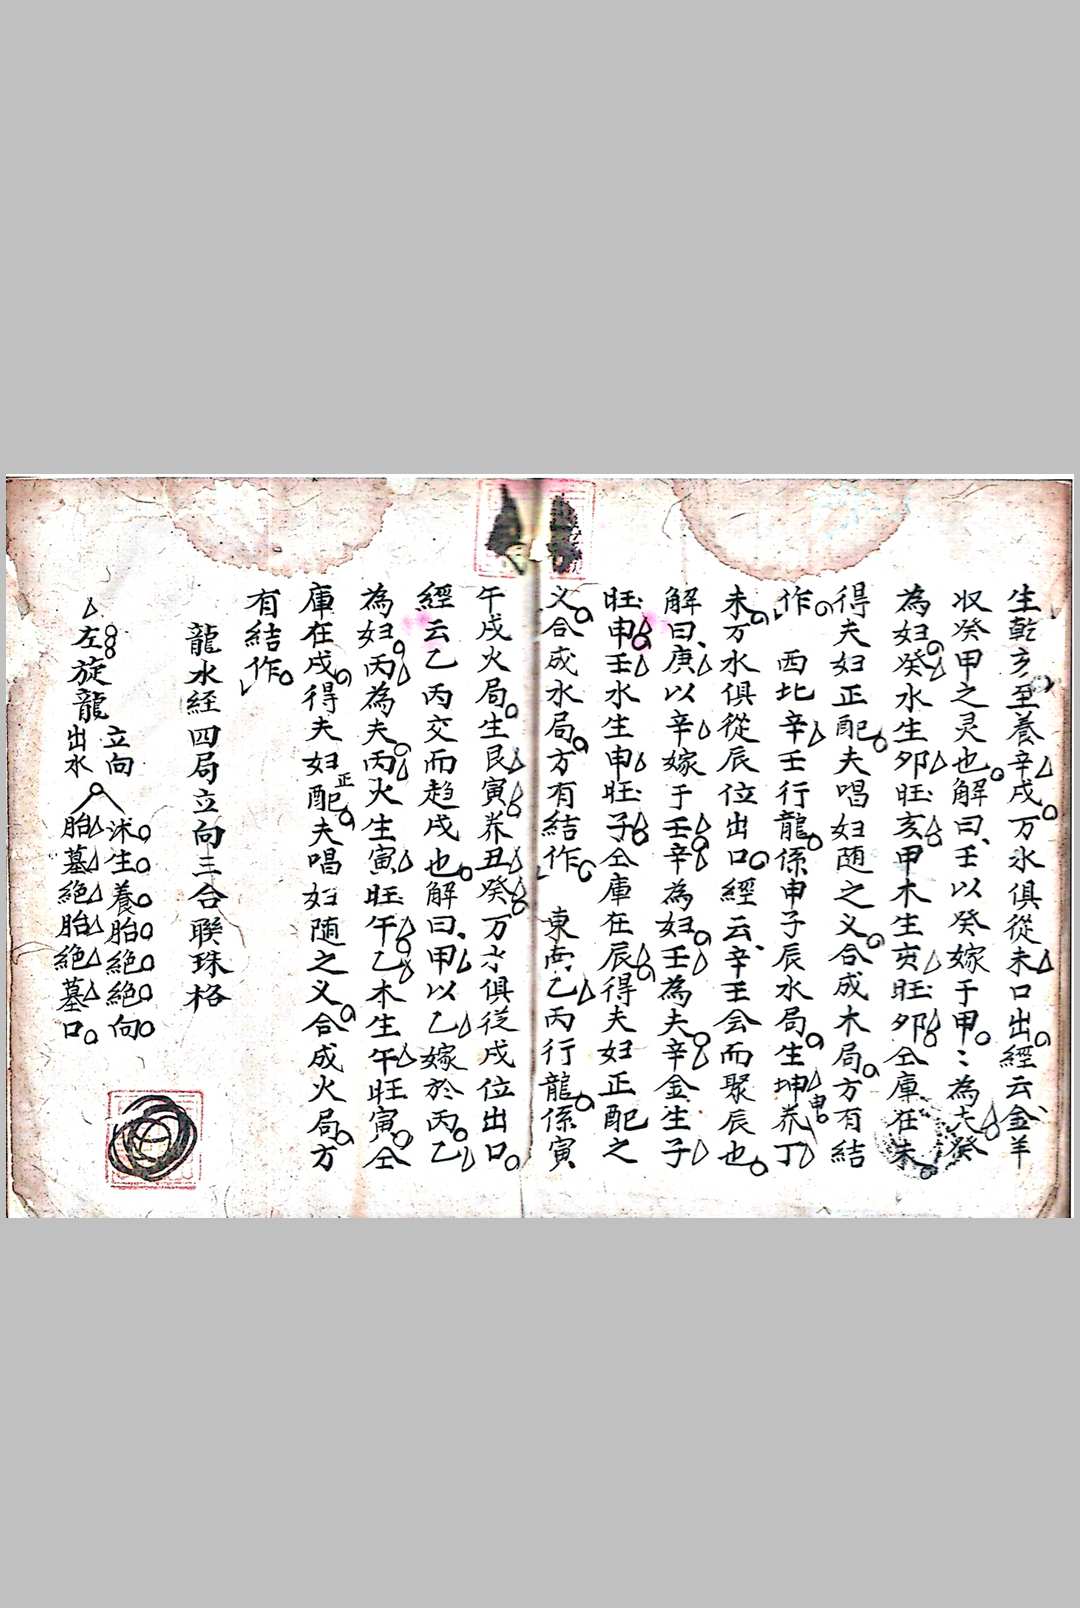 生乾亥至養辛戌万水俱從未口出經云金羊
収癸甲之灵也解曰壬以癸嫁于甲〻為夫癸
為妇癸水生夘旺亥甲木生亥旺夘仝庫在未
得夫妇正配夫唱妇随之义合成木局方有結
作 西北辛壬行龍係申子辰水局生坤申养丁
未万水俱從辰位出口經云辛壬会而聚辰也
解曰庚以辛嫁于壬辛為妇壬為夫辛金生子
旺申壬水生申旺子仝庫在辰得夫妇正配之
义合成水局方有結作 東南乙丙行龍係寅
午戌火局生艮寅养丑癸万水俱従戌位出口
經云乙丙交而趋戌也解曰甲以乙嫁於丙乙
為妇丙為夫丙火生寅旺午乙木生午旺寅仝
庫在戌得夫妇正配夫唱妇随之义合成火局方
有結作
龍水经四局立向三合聯珠格
左旋龍
立向 沐生養胎絕絕向
出水 胎墓絕胎絕墓口